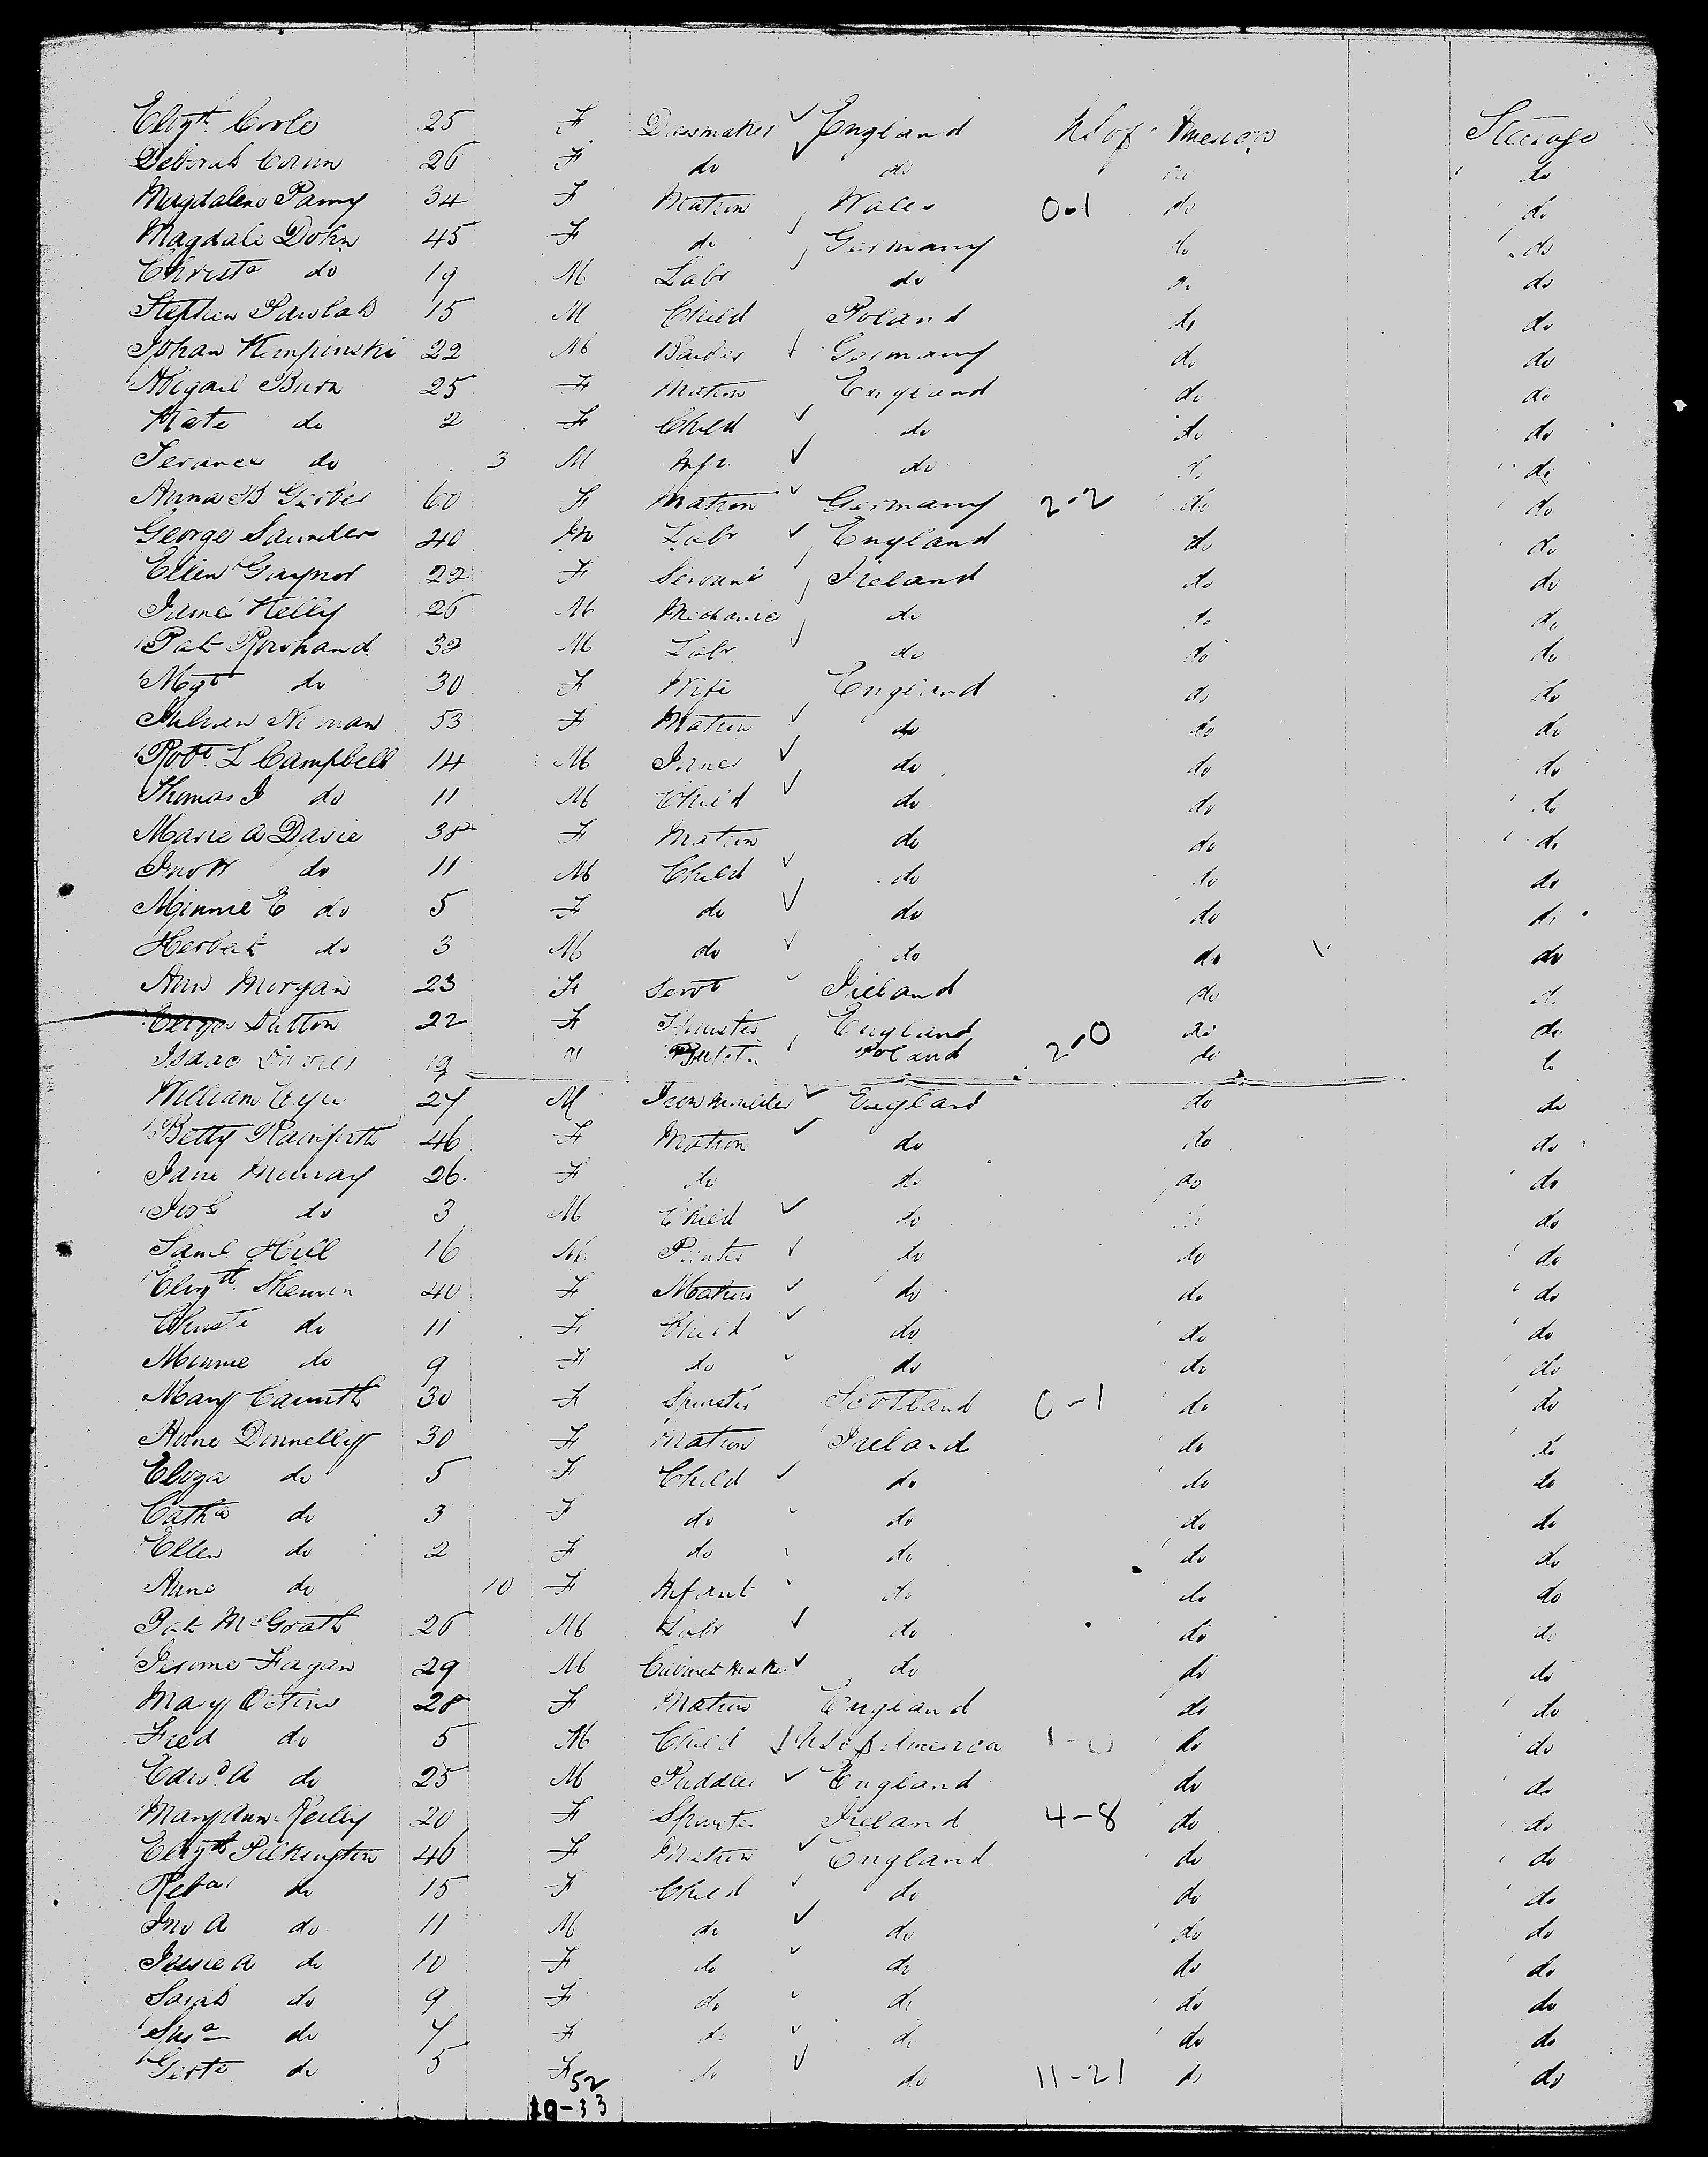 Elizth Coole 25 F Dressmaker England U S of America Steerage
Deborah 26 F do do do do
Magdalene Parry 34 F Matron Wales 0-1 do do
Magdale Dohn 45 F do Germany do do
Christa do 19 M Labr do do do
Stephen Pawlab 15 M Child Poland do do
Johan Kempinski 22 M Germany do do
Abigail Burn 25 F Matron England do do
Kate do 2 F Child do do do
do 3 M Inft do do do
Anna B Gerber 60 F Matron Germany 2-2 do do
George Saunders 40 M Labr England do do
Ellen Gaynor 22 F Servant Ireland do do
James Kelly 26 M Mechanic do do do
Pat Rowhand 38 M Labr do do do
Mgt do 30 F Wife England do do
53 F Matron do do do
Robt L Campbell 14 M Joiner do do do
Thomas J do 11 M Child do do do
Marie A Davie 38 F Matron do do do
Jno W do 11 M Child do do do
Minnie E do 5 F do do do do
Herbert do 3 M do do do do
Ann Morgan 23 F Servt Ireland do do
Eliza Dutton 22 F Spinster England do do
Isaac 19 M Poland 2-0 do do
William 27 M Iron moulder England do do
Betty Rainforth 46 F Matron do do do
Jane Murray 26 F do do do do
Josh do 3 M Child do do do
Saml Hill 16 M do do do
Elizth 40 F Matron do do do
Christe do 11 F Child do do do
Minnie do 9 F do do do do
Mary Carruth 30 F Spinster Scotland 0-1 do do
Anne Donnelly 30 F Matron Ireland do do
Eliza do 5 F Child do do do
Catha do 3 F do do do do
Ellen do 2 F do do do do
Anne do 10 F Infant do do do
Pat McGrath 26 M Labr do do do
Jerome Fagan 29 M Cabinet Maker do do do
Mary 28 F Matron England do do
Fred do 5 M Child U S of America 1-0 do do
Edwd A do 25 M Puddler England do do
Mary Ann Reilly 20 F Spinster Ireland 4-8 do do
Elizth Pilkington 46 F Matron England do do
Reba do 15 F Child do do do
Jno A do 11 M do do do do
Jessie A do 10 F do do do do
Sarah do 9 F do do do do
Susa do 7 F do do do do
Gerte do 5 F do do 11-21 do do
52
19-33